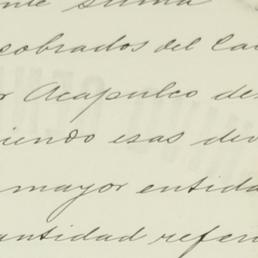 nte suma
cobrados del Ca
r Acapulco de
iendo esas dev
mayor entida
antidad referen